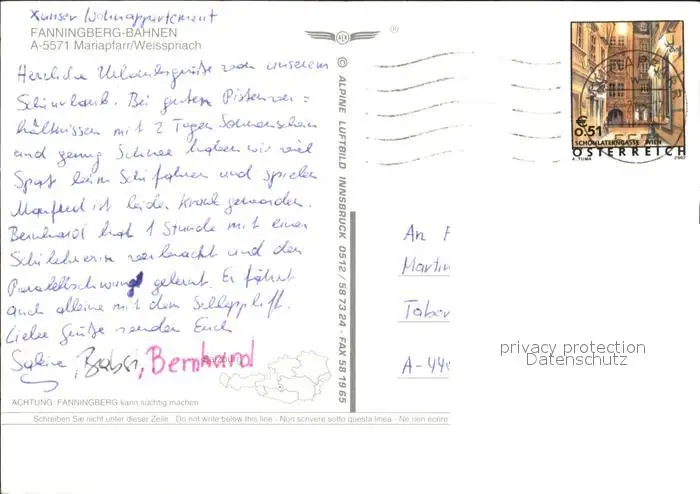 x unser Wohnappartement
FANNINGBERG-BAHNEN
A-5571 Mariapfarr/Weisspriach
Herrliche Urlaubsgrüße von unserem
Schiurlaub. Bei guten Pistenver=
hältnissen mit 2 Tagen Sonnenschein
und genug Schnee haben wir viel
Spaß beim Schifahren und spielen
Manfred ist leider krank geworden.
Bernhard hat 1 Stunde mit einer
Schilehrerin verbracht und den
Parallelschwung gelernt. Er fährt
auch alleine mit dem Schlepplift.
Liebe Grüße senden Euch
Sabine, Babsi, Bernhard
Salzburg
ACHTUNG: FANNINGBERG kann süchtig machen
Schreiben Sie nicht unter dieser Zeile - Do not write below this line - Non scrivere sotto questa linea - Ne rien écrire
© ALPINE LUFTBILD INNSBRUCK 0512/58 73 24 · FAX 58 19 65
®
€
0.51
SCHÖNLATERNGASSE, WIEN
ÖSTERREICH
A. TUMA
2002
An F
Martin
Tabor
A-44
privacy protection
Datenschutz